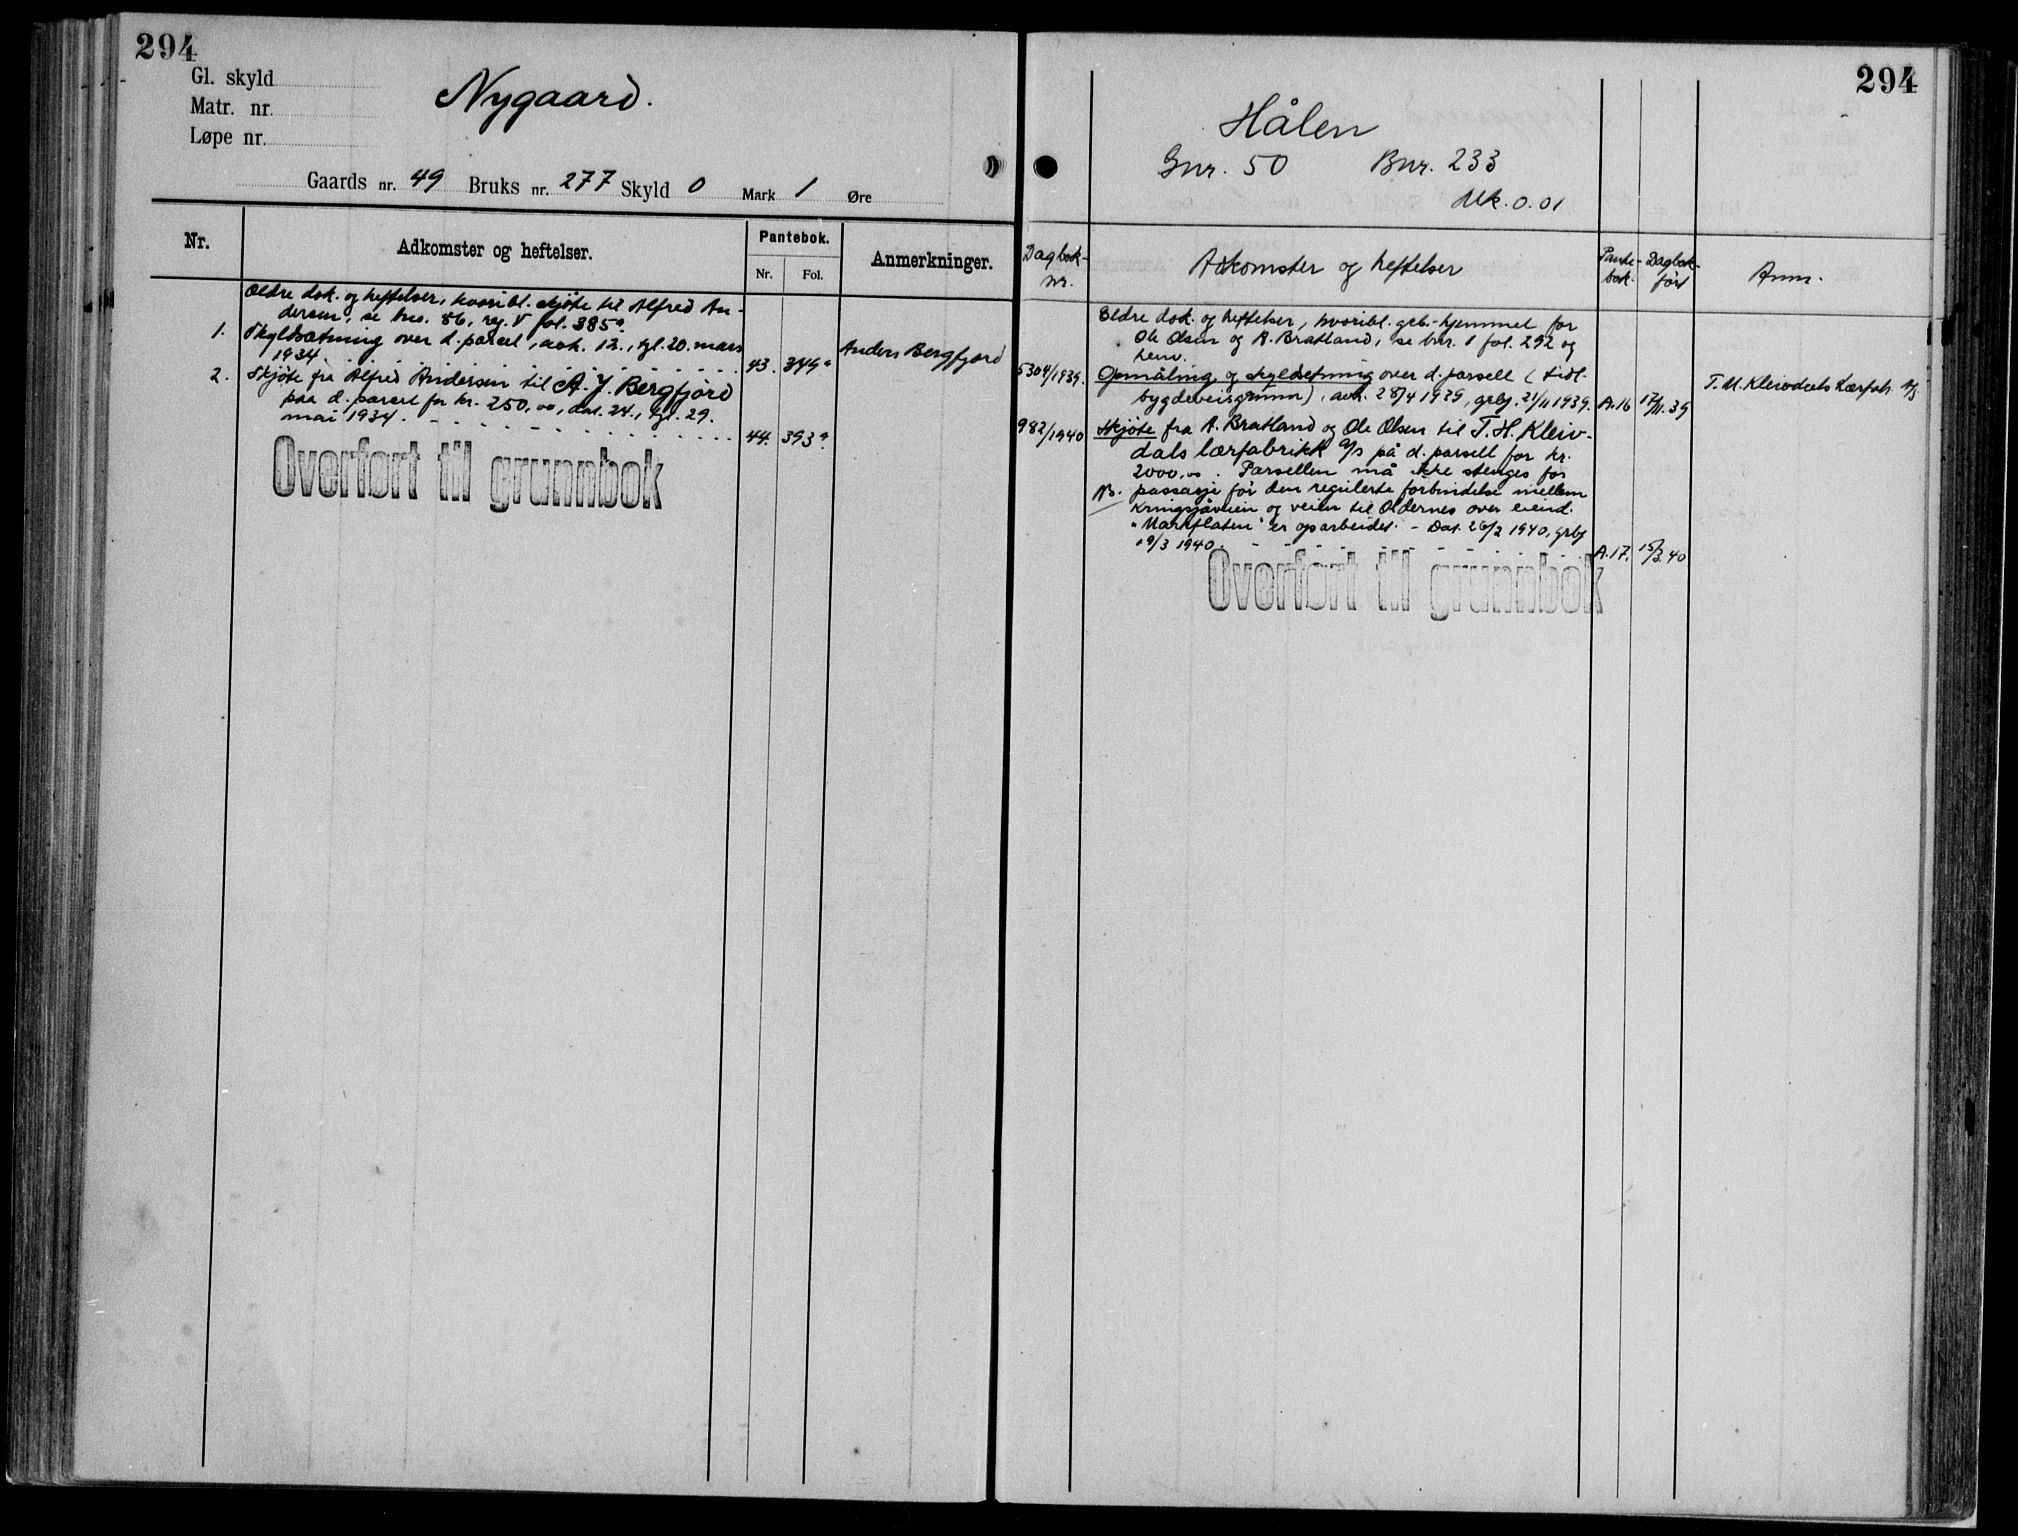 294
Gl. skyld
Matr. nr.
Løpe nr.
Nygaard.
Gaards nr. 49 Bruks nr. 277 Skyld 0 Mark 1 Øre
Nr.
Adkomster og heftelser.
Pantebok.
Nr. Fol.
Anmerkninger.
Ældre dok. og heftelser, hvoribl. skjøte til Alfred An-
dersen, se bno. 86, reg. V fol. 385a.
1. Skyldsætning over d. parcel, avh. 12., tgl. 20. mars
1934. 43. 349a Anders Bergfjord
2. Skjøte fra Alfred Andersen til A. J. Bergfjord
paa d. parcel for kr. 250,00, dat. 24., tgl. 29.
mai 1934. 44. 393a
Overført til grunnbok
294
Hålen
Gnr. 50 Bnr. 233
Mk. 0.01
Dagbok-
nr.
Adkomster og heftelser
Pante-
bok.
Dagbok-
ført
Anm.
Eldre dok. og heftelser, hvoribl. grb.-hjemmel for
Ole Olsen og A. Bratland, se bnr. 1 fol. 292 og
henv.
5304/1939. Opmåling og skyldsetning over d. parsell (tidl.
bygdeveisgrunn), avh. 28/4 1939, grbf. 21/11 1939. A.16 17/11.39 T. H. Kleivdals Lærfabr. A/S
982/1940 Skjøte fra A. Bratland og Ole Olsen til T. H. Kleiv-
dals lærfabrikk A/S på d. parsell for kr.
2000,00. Parsellen må ikke stenges for
NB. passasje før den regulerte forbindelse mellem
Kringsjåveien og veien til Oldernes over eiend.
"Markflaten" er oparbeidet. - Dat. 26/2 1940, grbf.
19/3 1940. A.17. 15/3.40
Overført til grunnbok